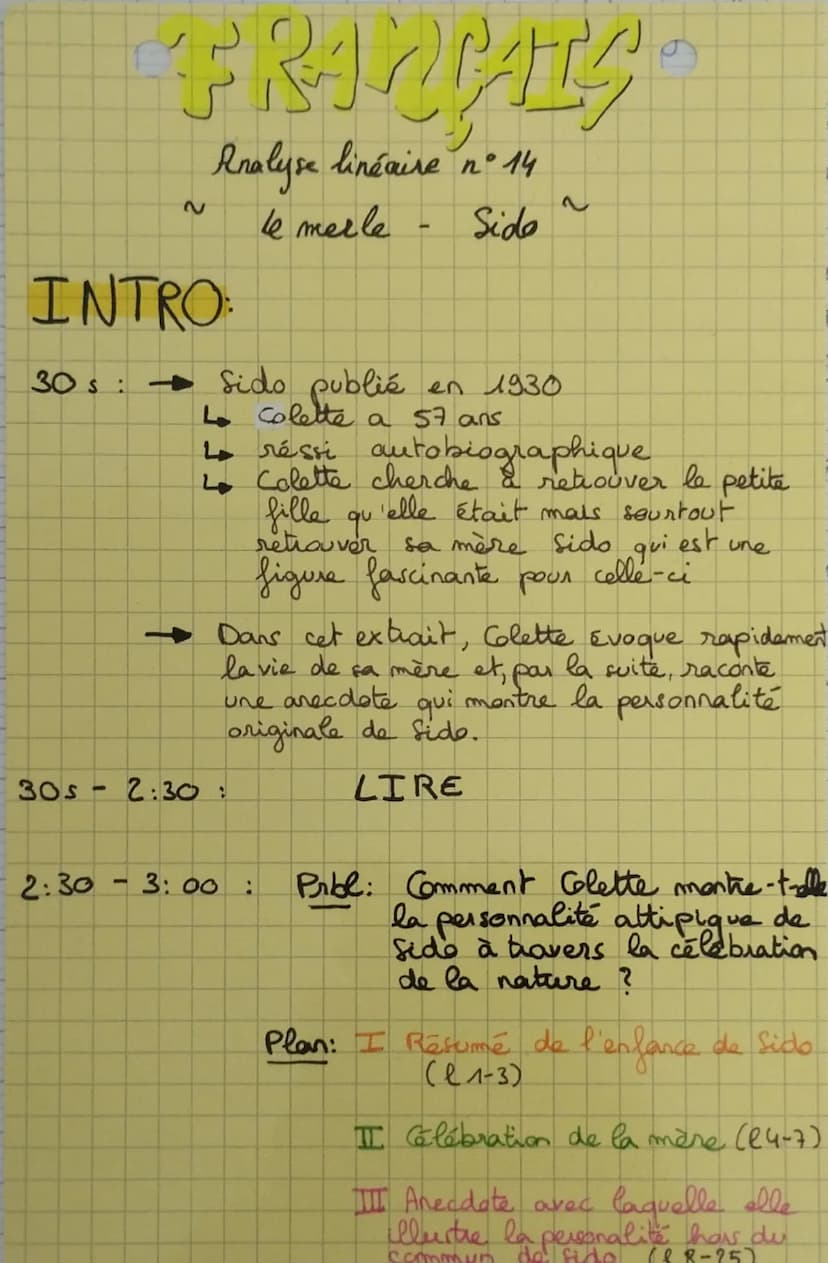 FRANÇAIS
Analyse linéaire n° 14
~ le merle - Sido ~
INTRO:
30 s : → Sido publié en 1930
↳ Colette a 57 ans
↳ réssi autobiographique
↳ Colette cherche à retrouver la petite
fille qu'elle était mais sourtout
retrouver sa mère Sido qui est une
figure fascinante pour celle-ci
→ Dans cet extrait, Colette évoque rapidement
la vie de sa mère et, par la suite, raconte
une anecdote qui montre la personnalité
originale de Sido.
30s - 2:30 : LIRE
2:30 - 3:00 : Prbl: Comment Colette montre-t-elle
la personnalité attipique de
Sido à travers la célébration
de la nature ?
Plan: I Résumé de l'enfance de Sido
(l 1-3)
II Célébration de la mère (l 4-7)
III Anecdote avec laquelle elle
illustre la personalité hors du
commun de Sido (l 8-25)